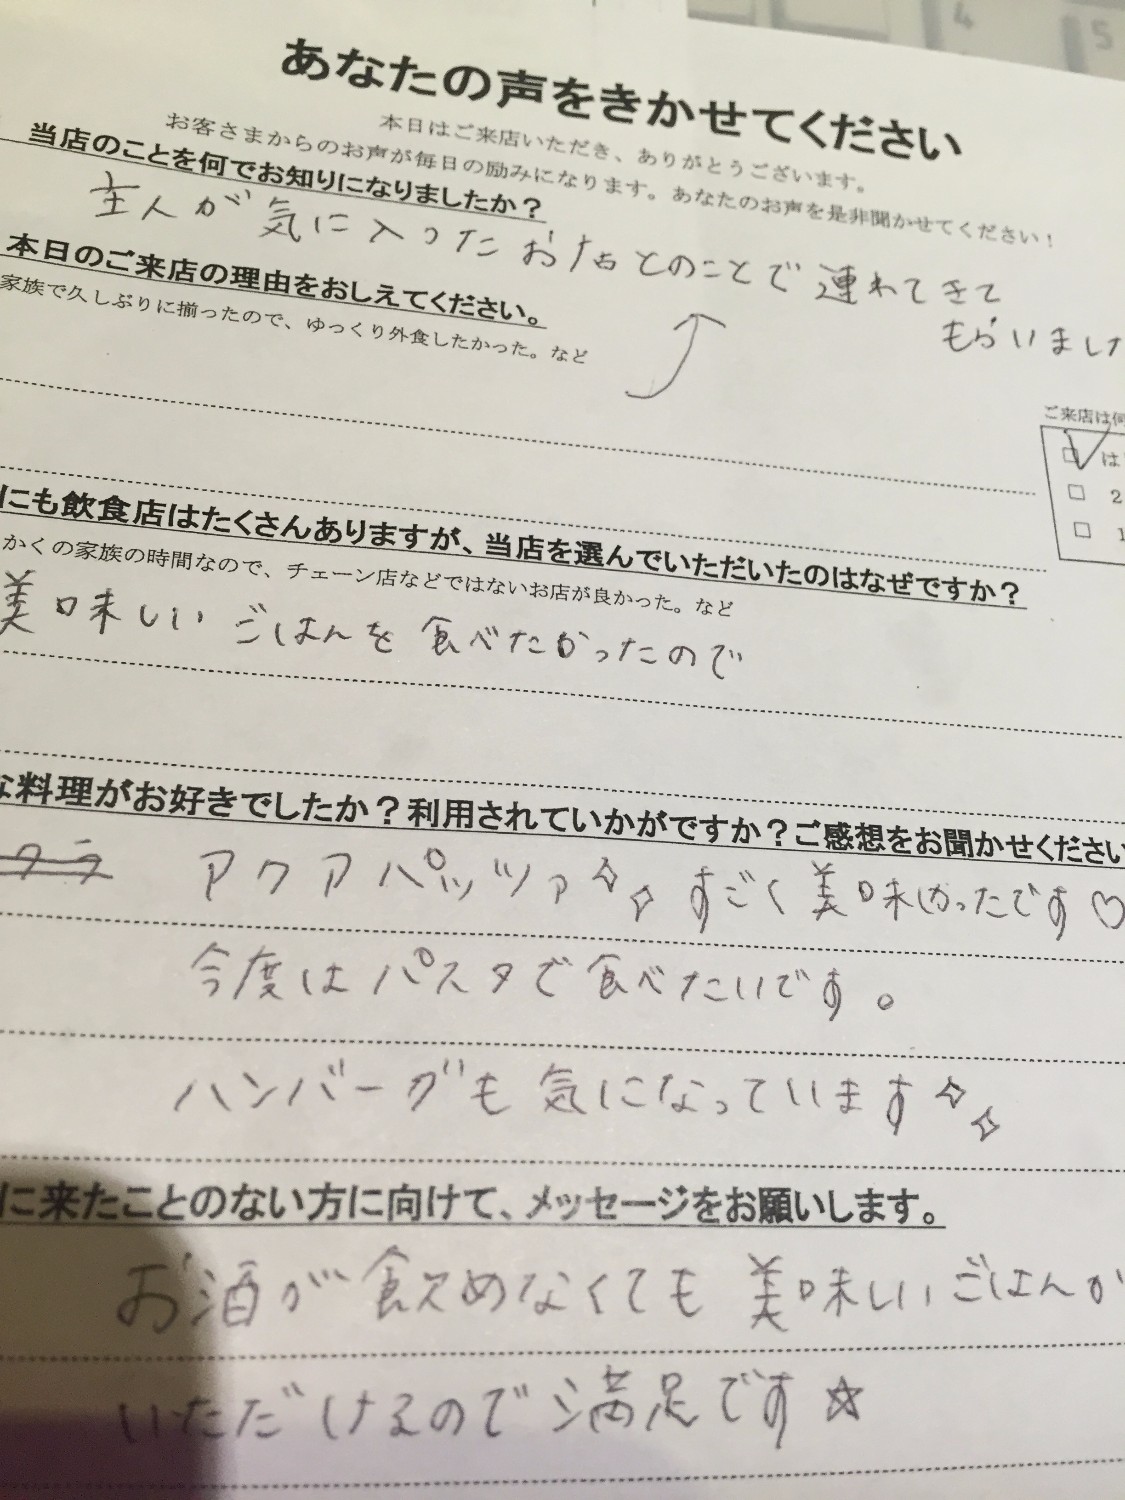 4 5
あなたの声をきかせてください
本日はご来店いただき、ありがとうございます。
お客さまからのお声が毎日の励みになります。あなたのお声を是非聞かせてください!
当店のことを何でお知りになりましたか?
主人が気に入ったお店とのことで連れてきて
もらいました
本日のご来店の理由をおしえてください。
家族で久しぶりに揃ったので、ゆっくり外食したかった。など
ご来店は何
は
2
1
にも飲食店はたくさんありますが、当店を選んでいただいたのはなぜですか?
かくの家族の時間なので、チェーン店などではないお店が良かった。など
美味しいごはんを食べたかったので
な料理がお好きでしたか?利用されていかがですか?ご感想をお聞かせください
アクアパッツァ すごく美味しかったです♡
今度はパスタで食べたいです。
ハンバーグも気になっています
に来たことのない方に向けて、メッセージをお願いします。
お酒が飲めなくても美味しいごはんが
いただけるので満足です☆